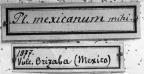 Pl. mexicanum mihi.
1877.
Vulc. Orizaba (Mexico)